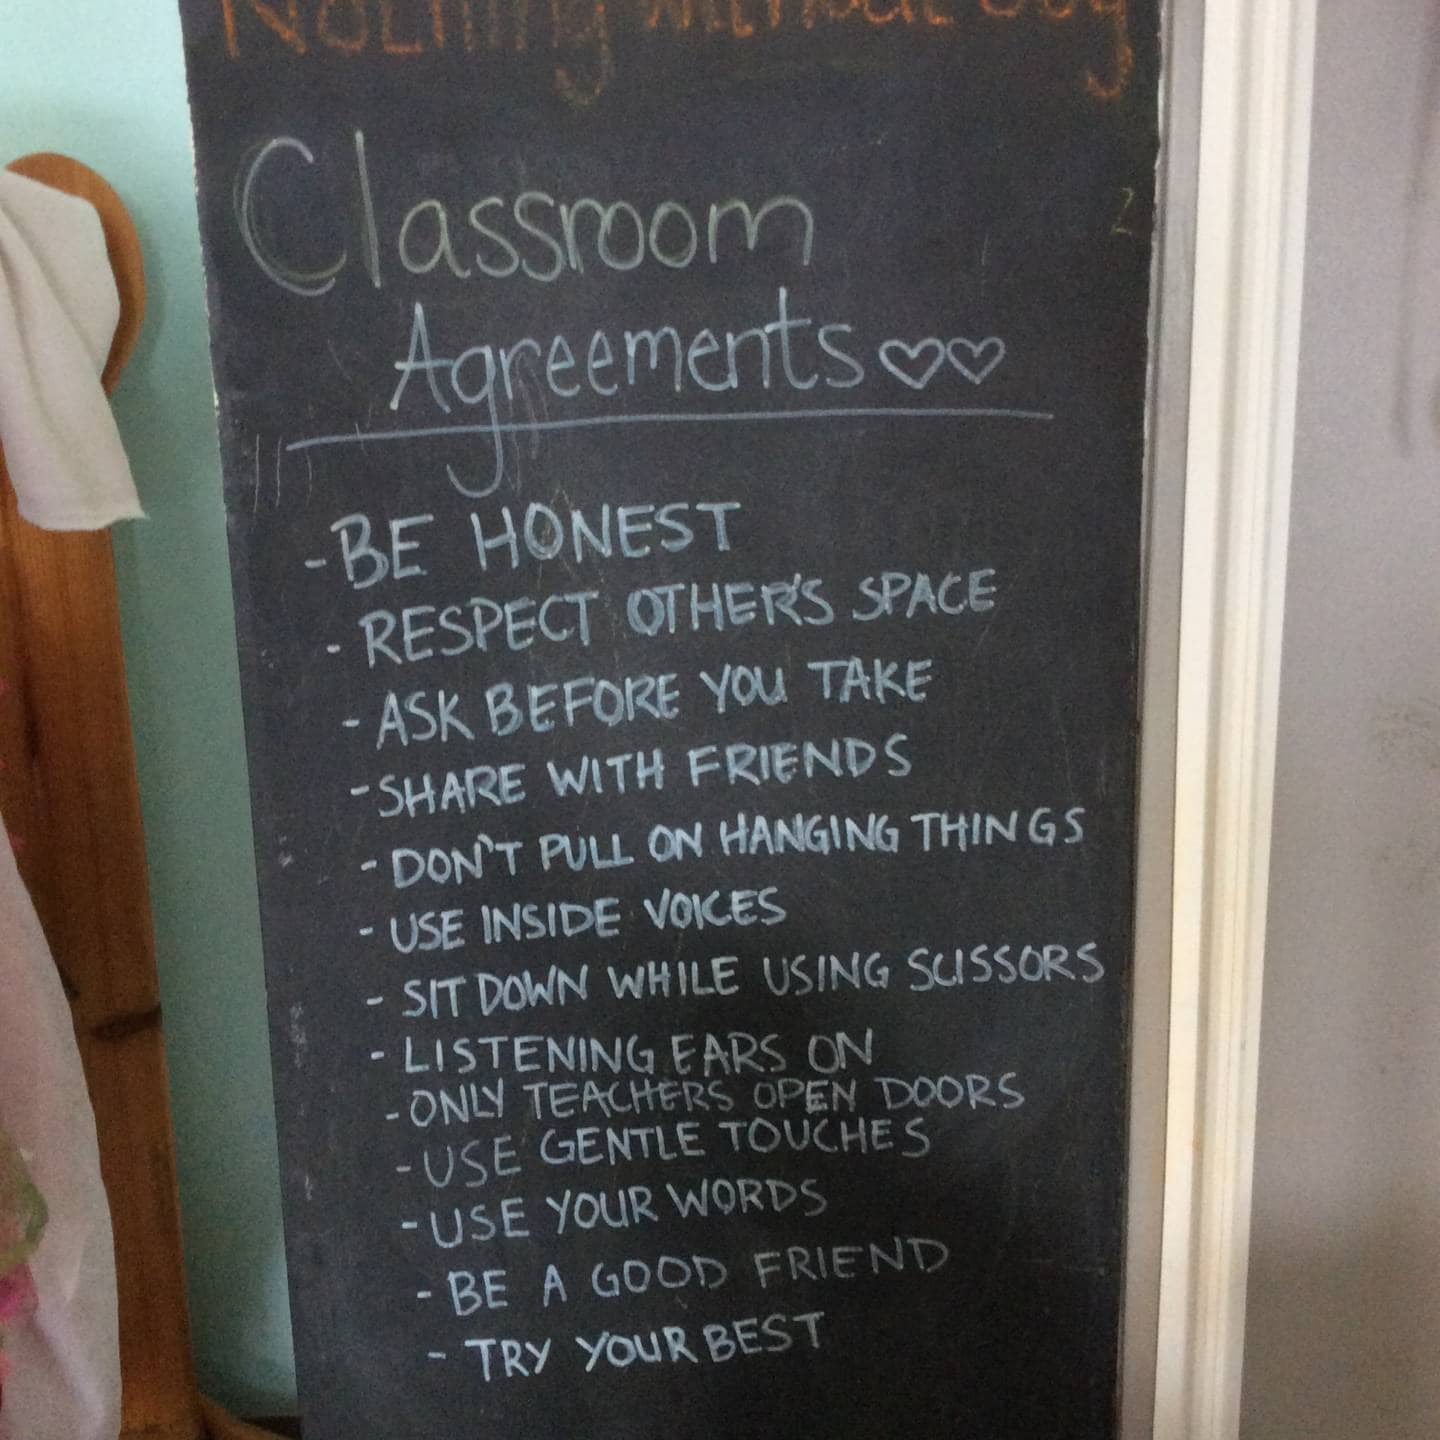 Nothing without Joy
Classroom
Agreements ♡♡
- BE HONEST
- RESPECT OTHER'S SPACE
- ASK BEFORE YOU TAKE
- SHARE WITH FRIENDS
- DON'T PULL ON HANGING THINGS
- USE INSIDE VOICES
- SIT DOWN WHILE USING SCISSORS
- LISTENING EARS ON
- ONLY TEACHERS OPEN DOORS
- USE GENTLE TOUCHES
- USE YOUR WORDS
- BE A GOOD FRIEND
- TRY YOUR BEST